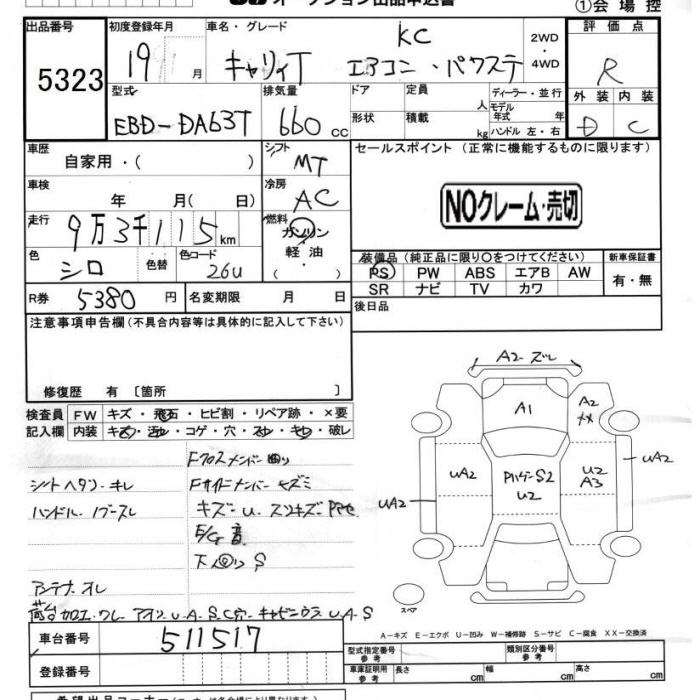 オークション出品申込書
①会場控
出品番号 5323
初度登録年月 19 月
車名・グレード キャリイT KC エアコン・パワステ
2WD・4WD
評価点 R
外装 D 内装 C
型式 EBD-DA63T
排気量 660 cc
ドア 形状
定員 人
積載 kg
ディーラー・並行
モデル年式 年式
ハンドル 左・右
車歴 自家用・( )
シフト MT
セールスポイント (正常に機能するものに限ります)
NOクレーム・売切
車検 年 月( 日)
冷房 AC
走行 9万3千115km
燃料 ガソリン 軽油 ( )
色 シロ 色替 色コード 26U
装備品(純正品に限り〇をつけてください)
PS PW ABS エアB AW
SR ナビ TV カワ
新車保証書 有・無
R券 5380円
名変期限 月 日
後日品
注意事項申告欄(不具合内容等は具体的に記入して下さい)
修復歴 有 〔箇所 〕
検査員記入欄
FW キズ・飛石・ヒビ割・リペア跡・×要
内装 キズ・汚レ・コゲ・穴・スレ・キレ・破レ
Fクロスメンバー曲り
シートヘタリ・キレ
Fサイドメンバーキズミ
ハンドル・ノブースレ
キズ・U.スリキズ
E/g音
下回りS
アンテナ.オレ
荷台加工・ワレ アオリU.A.S.C穴・キャビンウラU.A.S
A2-ズレ
A1
A2
XX
UA2
UA2
U2
UA2
U2
A3
UA2
スペア
A-キズ E-エクボ U-凹み W-補修跡 S-サビ C-腐食 XX-交換済
車台番号 511517
登録番号
型式指定番号 参考
類別区分番号 参考
車庫証明用 参考
長さ cm 幅 cm 高さ cm